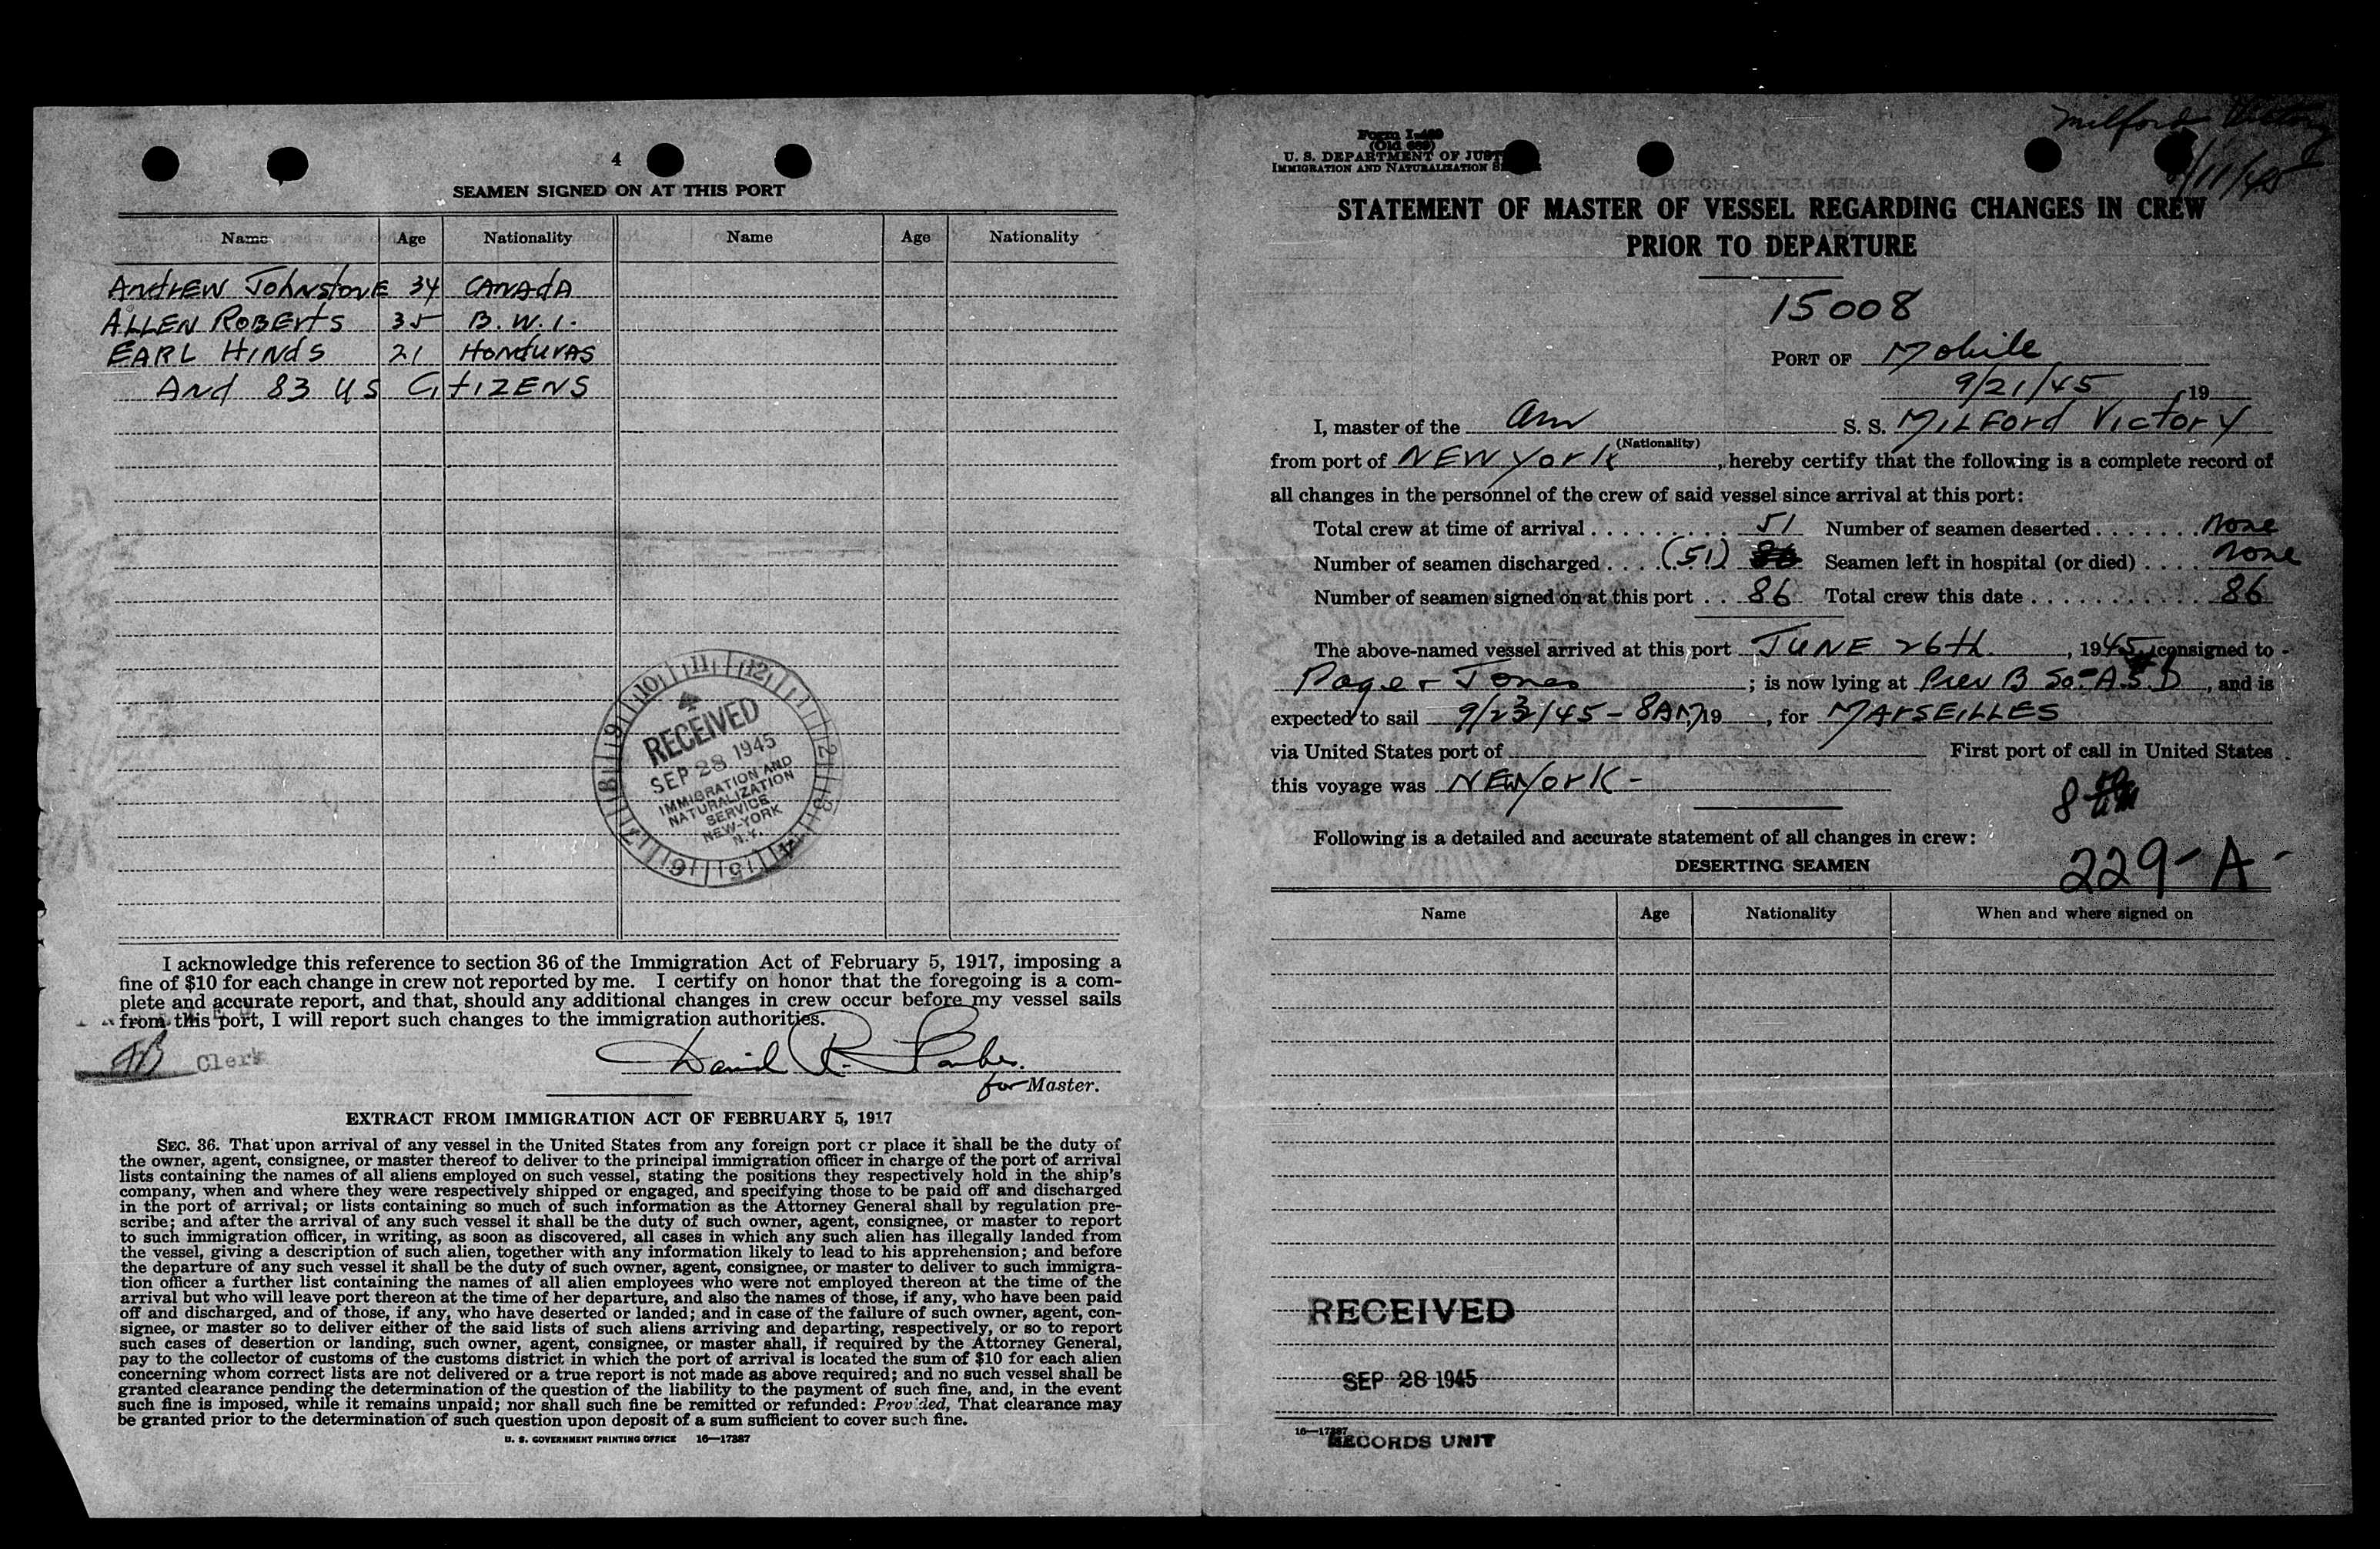 4
SEAMEN SIGNED ON AT THIS PORT
Name Age Nationality Name Age Nationality
ANdrEW JohNstoNE 34 CANAdA
ALLEN RoBErtS 35 B. W. I.
EARL HINdS 21 HoNdurAS
ANd 83 US CitIZENS
RECEIVED
SEP 28 1945
IMMIGRATION AND
NATURALIZATION
SERVICE
NEW-YORK
N.Y.
I acknowledge this reference to section 36 of the Immigration Act of February 5, 1917, imposing a
fine of $10 for each change in crew not reported by me. I certify on honor that the foregoing is a com-
plete and accurate report, and that, should any additional changes in crew occur before my vessel sails
from this port, I will report such changes to the immigration authorities.
Clerk
David R.
for Master.
EXTRACT FROM IMMIGRATION ACT OF FEBRUARY 5, 1917
SEC. 36. That upon arrival of any vessel in the United States from any foreign port or place it shall be the duty of
the owner, agent, consignee, or master thereof to deliver to the principal immigration officer in charge of the port of arrival
lists containing the names of all aliens employed on such vessel, stating the positions they respectively hold in the ship's
company, when and where they were respectively shipped or engaged, and specifying those to be paid off and discharged
in the port of arrival; or lists containing so much of such information as the Attorney General shall by regulation pre-
scribe; and after the arrival of any such vessel it shall be the duty of such owner, agent, consignee, or master to report
to such immigration officer, in writing, as soon as discovered, all cases in which any such alien has illegally landed from
the vessel, giving a description of such alien, together with any information likely to lead to his apprehension; and before
the departure of any such vessel it shall be the duty of such owner, agent, consignee, or master to deliver to such immigra-
tion officer a further list containing the names of all alien employees who were not employed thereon at the time of the
arrival but who will leave port thereon at the time of her departure, and also the names of those, if any, who have been paid
off and discharged, and of those, if any, who have deserted or landed; and in case of the failure of such owner, agent, con-
signee, or master so to deliver either of the said lists of such aliens arriving and departing, respectively, or so to report
such cases of desertion or landing, such owner, agent, consignee, or master shall, if required by the Attorney General,
pay to the collector of customs of the customs district in which the port of arrival is located the sum of $10 for each alien
concerning whom correct lists are not delivered or a true report is not made as above required; and no such vessel shall be
granted clearance pending the determination of the question of the liability to the payment of such fine, and, in the event
such fine is imposed, while it remains unpaid; nor shall such fine be remitted or refunded: Provided, That clearance may
be granted prior to the determination of such question upon deposit of a sum sufficient to cover such fine.
U. S. GOVERNMENT PRINTING OFFICE 16—17387
Milford Victory
/11/45
Form I-489
U. S. DEPARTMENT OF JUST
IMMIGRATION AND NATURALIZATION S
STATEMENT OF MASTER OF VESSEL REGARDING CHANGES IN CREW
PRIOR TO DEPARTURE
15008
PORT OF Mobile
9/21/45 19
I, master of the Am S. S. MILFord Victory
(Nationality)
from port of NEW York, hereby certify that the following is a complete record of
all changes in the personnel of the crew of said vessel since arrival at this port:
Total crew at time of arrival . . . . . . . . . . 51 Number of seamen deserted . . . . . . . None
Number of seamen discharged . . . . (51) 86 Seamen left in hospital (or died) . . . . None
Number of seamen signed on at this port . . 86 Total crew this date . . . . . . . . . . . . 86
The above-named vessel arrived at this port JUNE 26th, 1945, consigned to
Page & Jones; is now lying at Pier B So. A.S.D, and is
expected to sail 9/23/45 - 8AM 19, for MArSEILLES
via United States port of First port of call in United States
this voyage was NEWYorK -
8 AM
Following is a detailed and accurate statement of all changes in crew:
229-A-
DESERTING SEAMEN
Name Age Nationality When and where signed on
RECEIVED
SEP 28 1945
16—17387
RECORDS UNIT